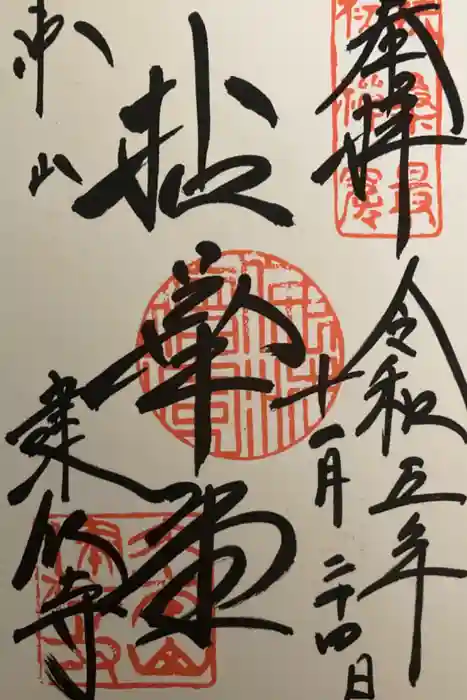 奉拝
令和五年
十一月二十四日
拈華堂
東山
建仁寺